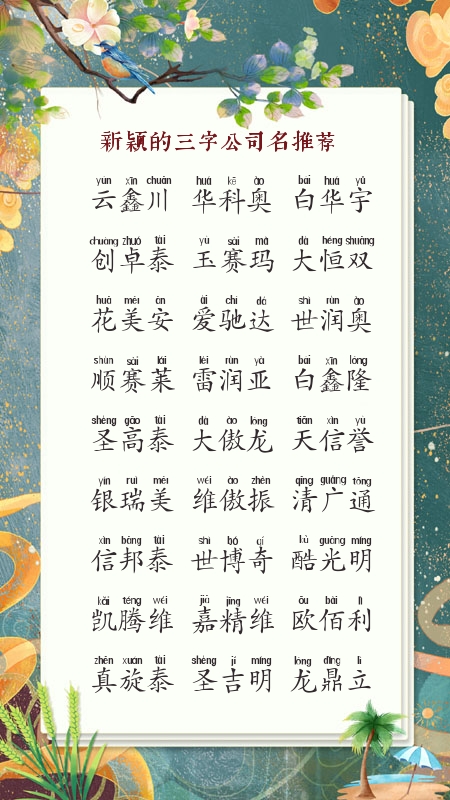 新颖的三字公司名推荐
yún xīn chuān huá kē ào bái huá yǔ
云鑫川 华科奥 白华宇
chuàng zhuó tài yù sài mǎ dà héng shuāng
创卓泰 玉赛玛 大恒双
huā měi ān ài chí dá shì rùn ào
花美安 爱驰达 世润奥
shùn sài lái léi rùn yà bái xīn lóng
顺赛莱 雷润亚 白鑫隆
shèng gāo tài dà ào lóng tiān xìn yù
圣高泰 大傲龙 天信誉
yín ruì měi wéi ào zhèn qīng guǎng tōng
银瑞美 维傲振 清广通
xìn bāng tài shì bó qí kù guāng míng
信邦泰 世博奇 酷光明
kǎi téng wéi jiā jīng wéi ōu bǎi lì
凯腾维 嘉精维 欧佰利
zhēn xuán tài shèng jí míng lóng dǐng lì
真旋泰 圣吉明 龙鼎立